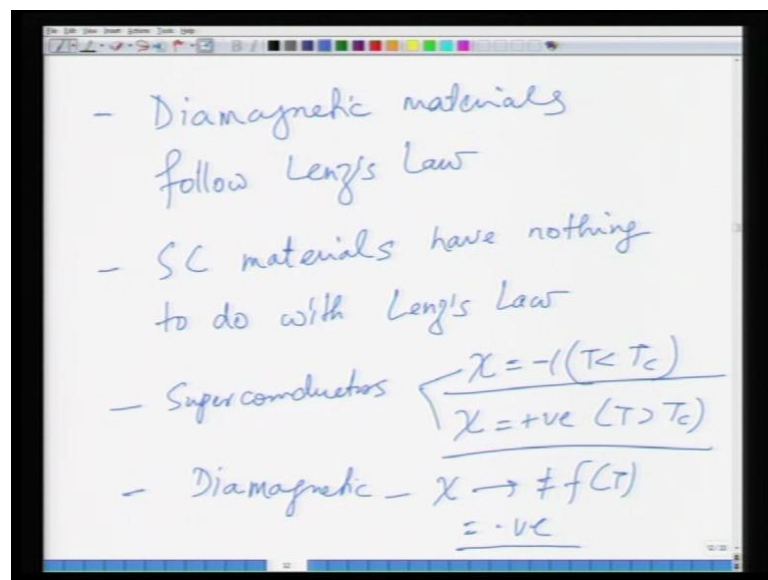 File Edit View Insert Actions Tools Help
- Diamagnetic materials
follow Lenz's Law
- SC materials have nothing
to do with Lenz's Law
- Superconductors χ = -1 (T < Tc)
χ = +ve (T > Tc)
- Diamagnetic - χ → ≠ f(T)
= -ve